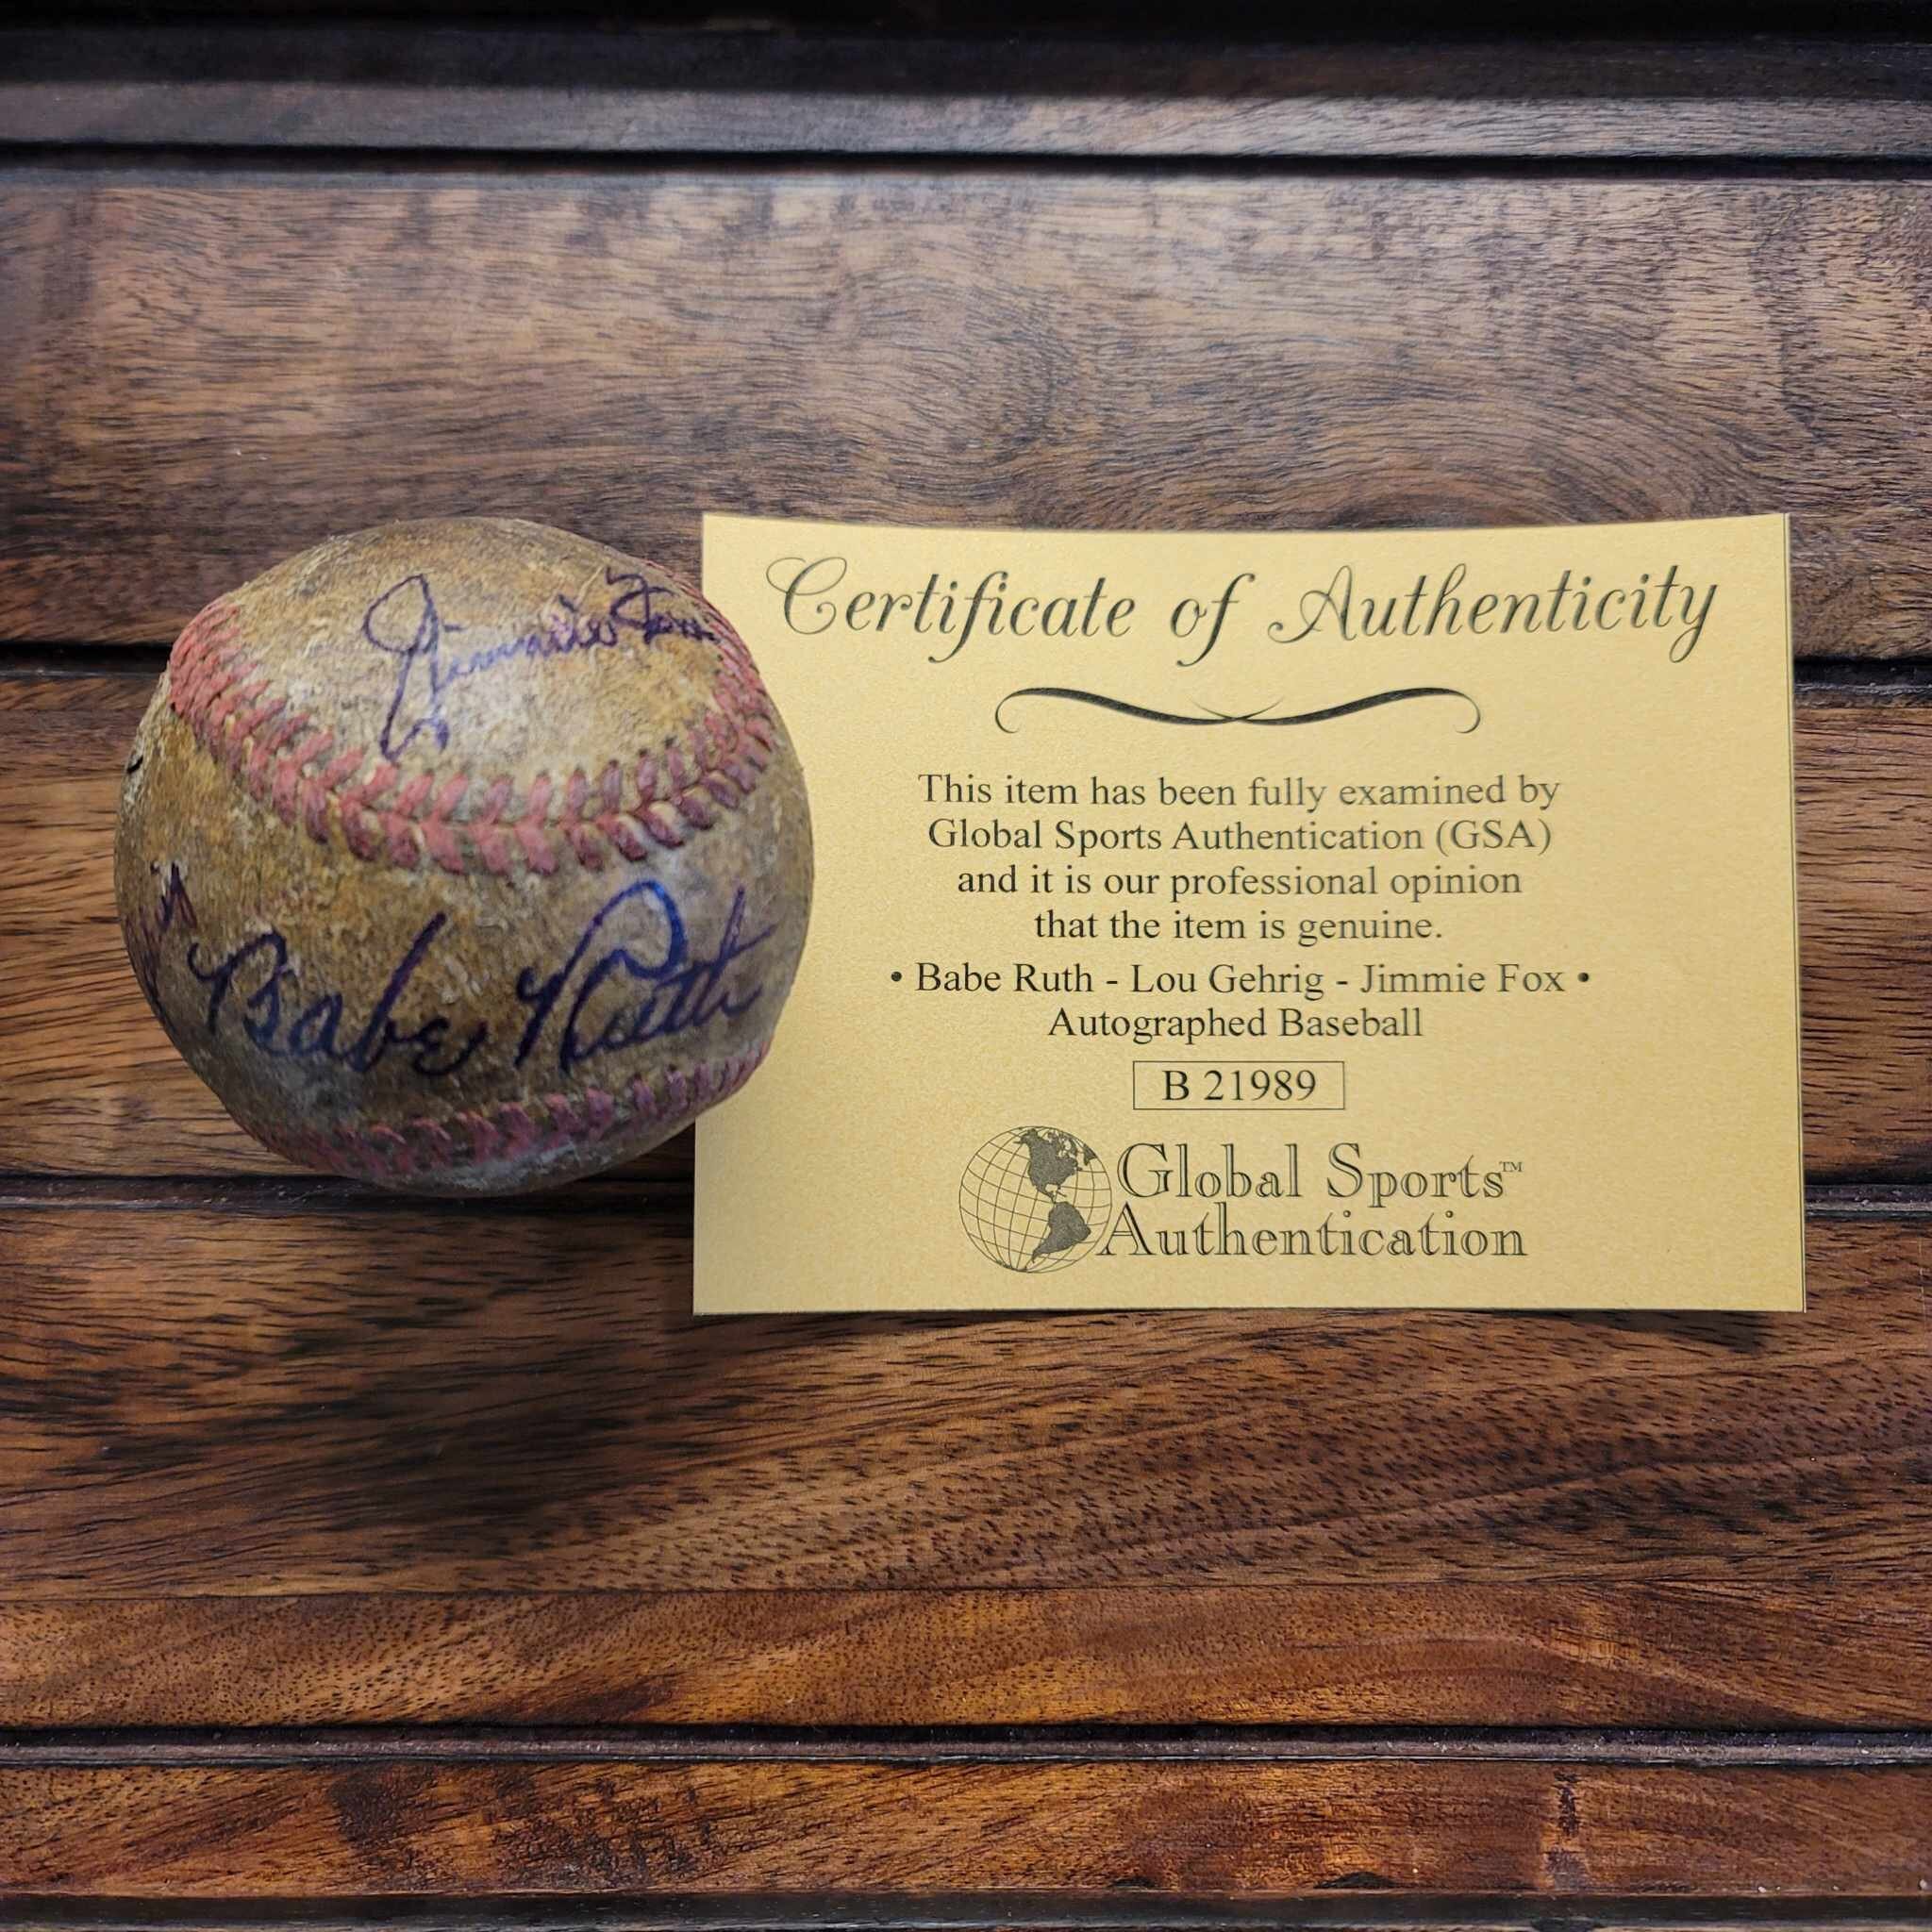 Jimmie Foxx
Babe Ruth
Certificate of Authenticity
This item has been fully examined by
Global Sports Authentication (GSA)
and it is our professional opinion
that the item is genuine.
• Babe Ruth - Lou Gehrig - Jimmie Fox •
Autographed Baseball
B 21989
Global Sports™
Authentication